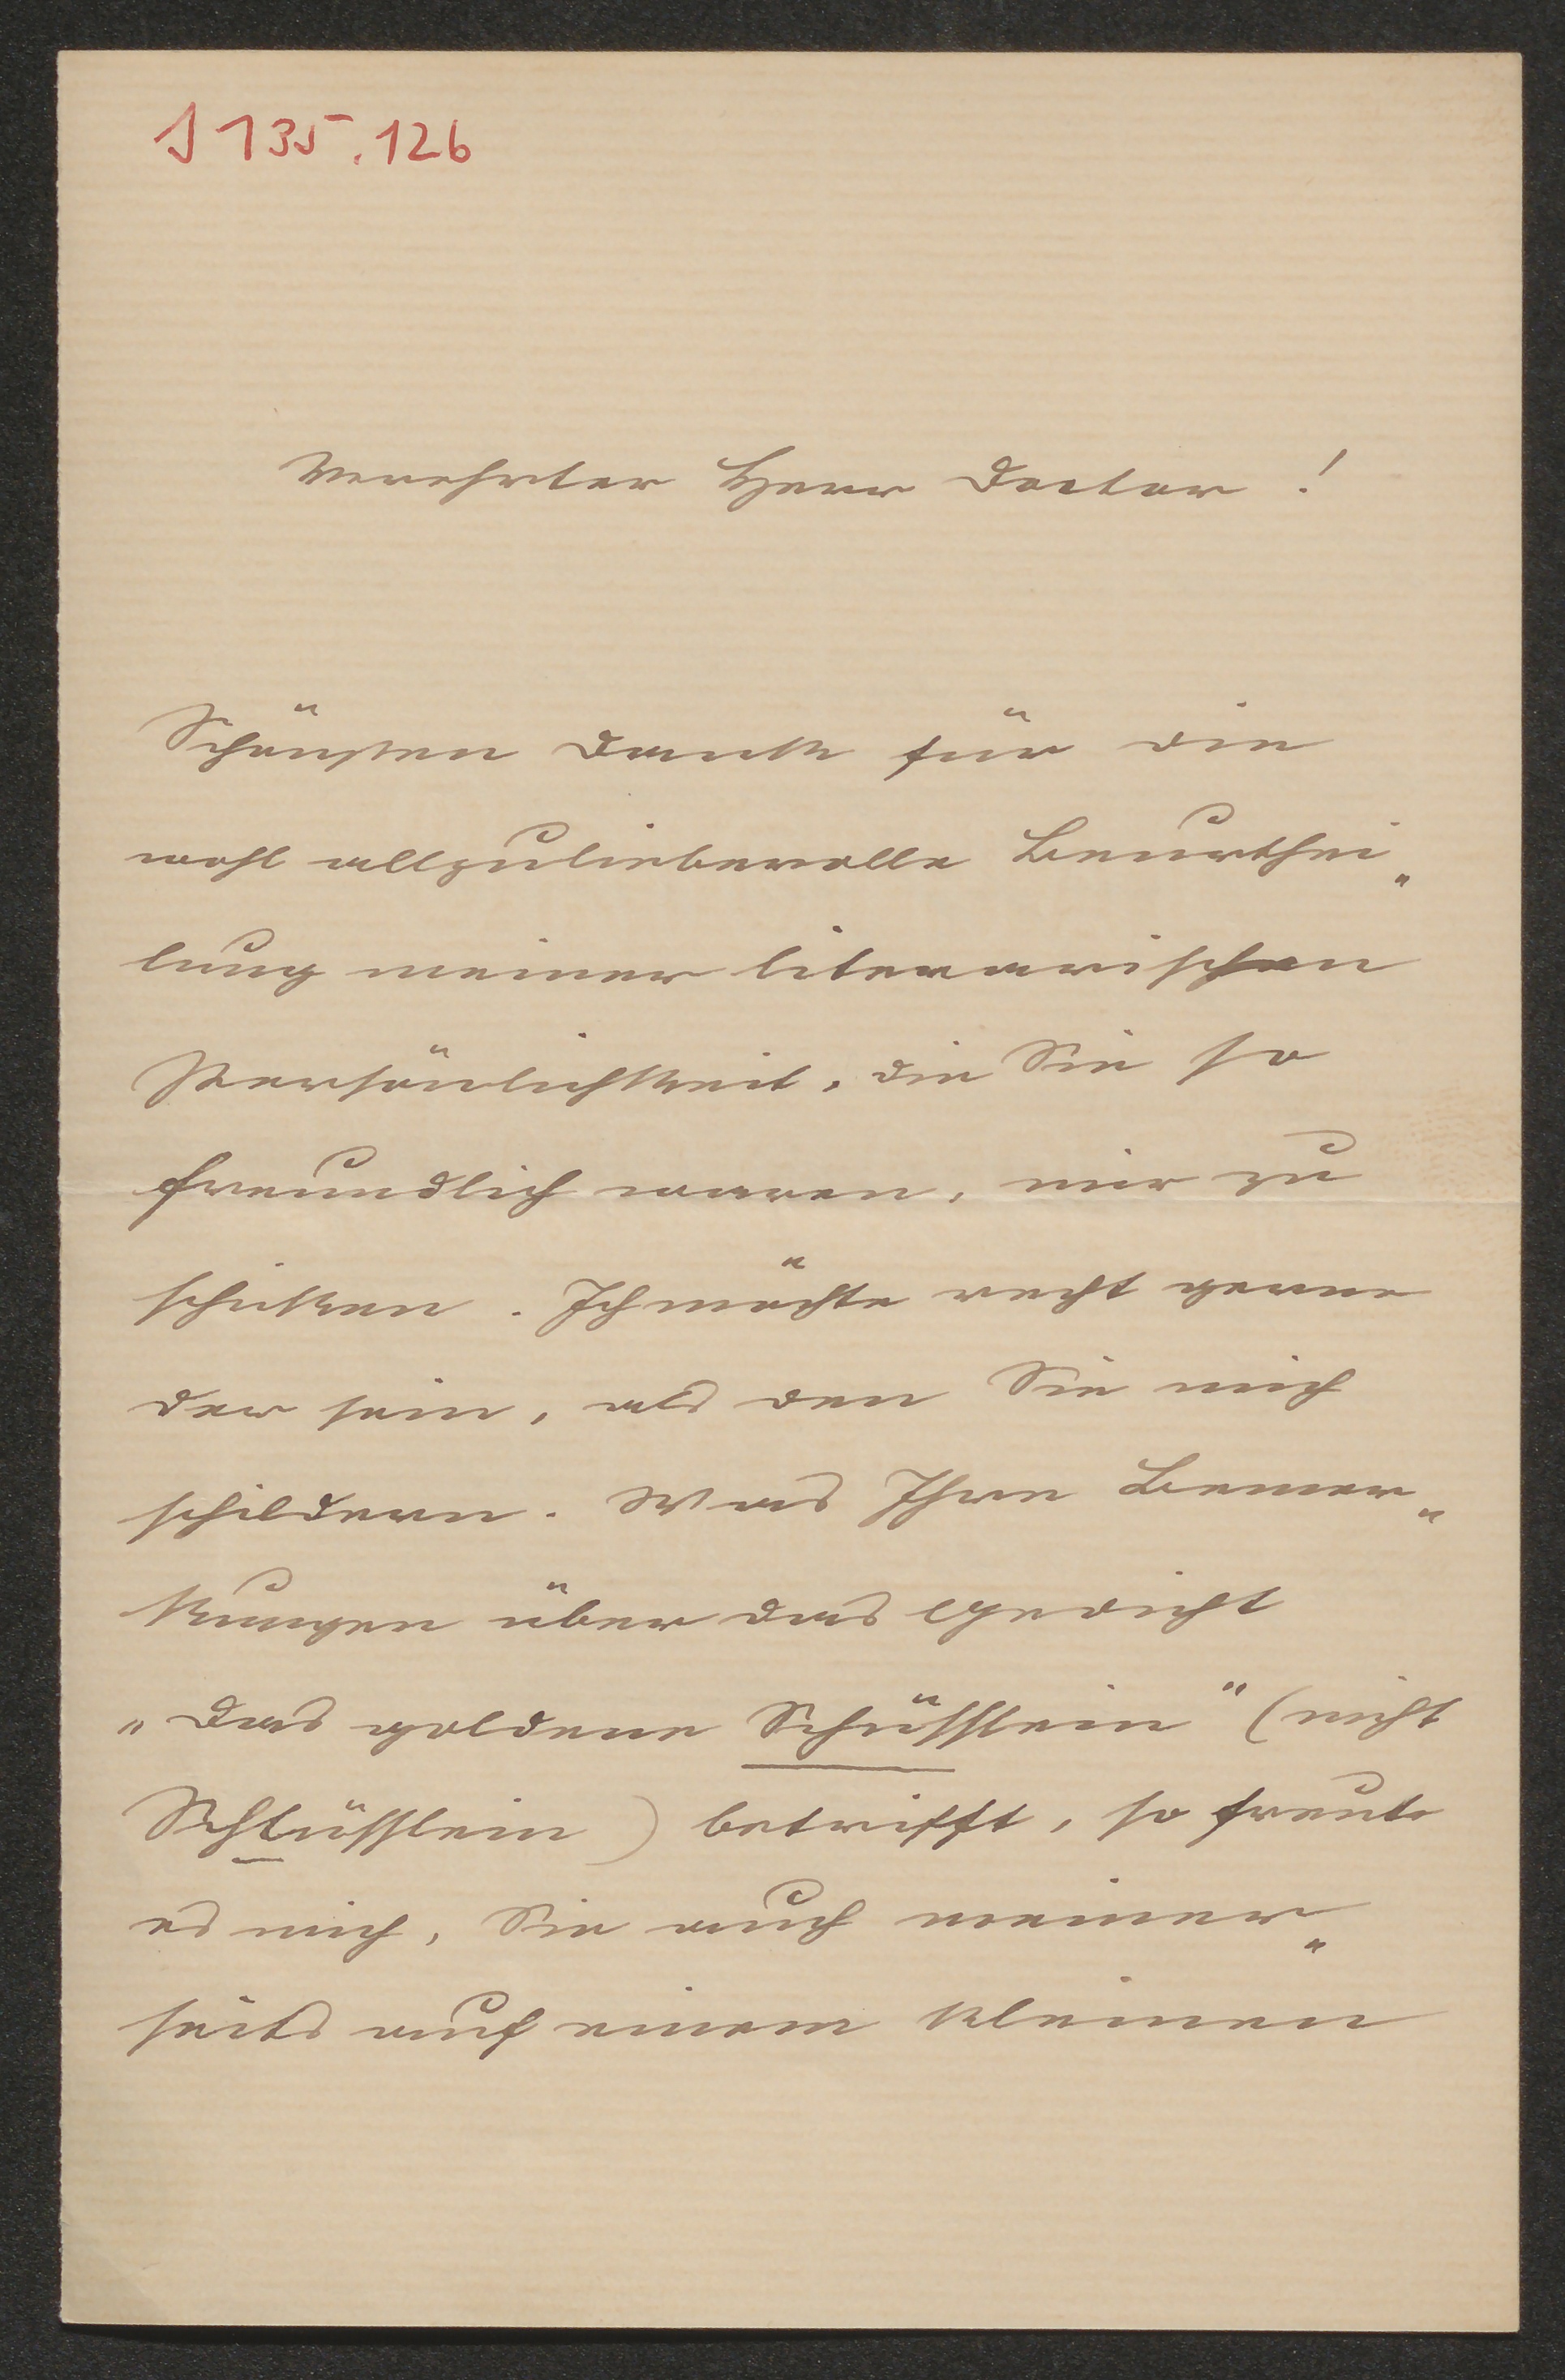 J 135.126
Verehrter Herr Doctor!
Schönsten Dank für die
wohl allzuliebevolle Beurthei„
lung meiner literarischen
Persönlichkeit, die Sie so
freundlich waren, mir zu
schicken. Ich möchte recht gerne
der sein, als den Sie mich
schildern. Was Ihre Bemer„
kungen über das Gedicht
„Das goldene Schüsslein“ (nicht
Schlüsslein) betrifft, so freute
es mich, Sie auch meiner„
seits auf einem kleinen